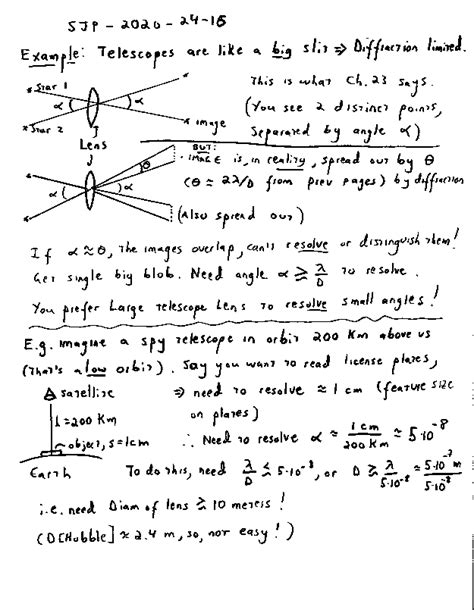 SJP - 2020 - 24-16
Example: Telescopes are like a big slit ⇒ Diffraction limited.
Star 1
α
α
Star 2
image
Lens
This is what Ch. 23 says.
(You see 2 distinct points,
separated by angle α)
BUT:
· image is, in reality, spread out by θ
(θ ≈ 2λ/D from prev pages) by diffraction
α
α
θ
(Also spread out)
If α ≈ θ, the images overlap, can't resolve or distinguish them!
Get single big blob. Need angle α ≳ λ/D to resolve.
You prefer Large telescope Lens to resolve small angles!
E.g. imagine a spy telescope in orbit 200 Km above us
(that's a low orbit). Say you want to read license plates,
satellite
⇒ need to resolve ≈ 1 cm (feature size
on plates)
L = 200 Km
object, s = 1cm
Earth
∴ Need to resolve α ≈ 1 cm / 200 Km ≈ 5·10⁻⁸
To do this, need λ/D ≲ 5·10⁻⁸, or D ≳ λ / 5·10⁻⁸ ≈ 5·10⁻⁷ m / 5·10⁻⁸
i.e. need Diam of lens ≳ 10 meters!
(D[Hubble] ≈ 2.4 m, so, not easy!)